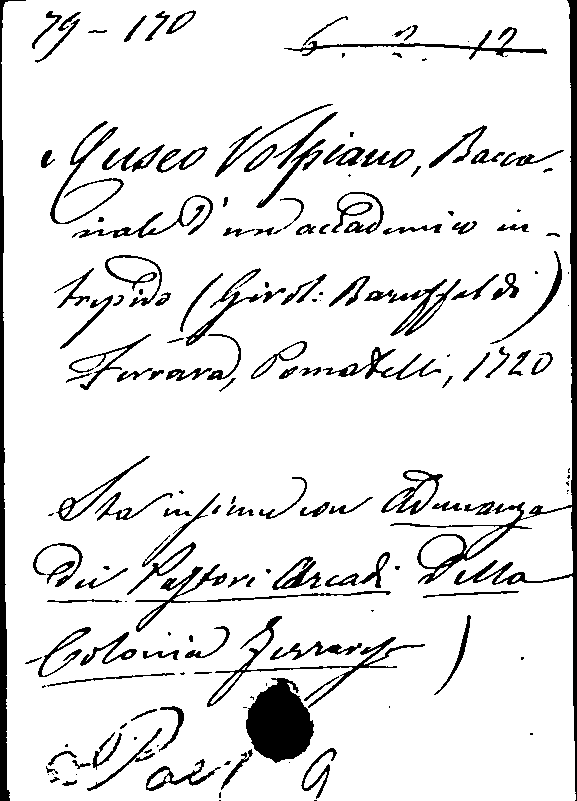 79 - 170 6. 2. 12
Museo Volpiano, Bacca-
nale d'un accademico in-
trepido (Girol: Baruffaldi)
Ferrara, Pomatelli, 1720
Sta insieme con Adunanza
dei Pastori Arcadi della
Colonia Ferrarese )
9